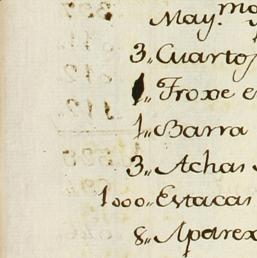 May.r mo
3,, Cuartos
1,, Froxe e
1,, Barra
3,, Achas
1000,, Estacas
8,, Aparex